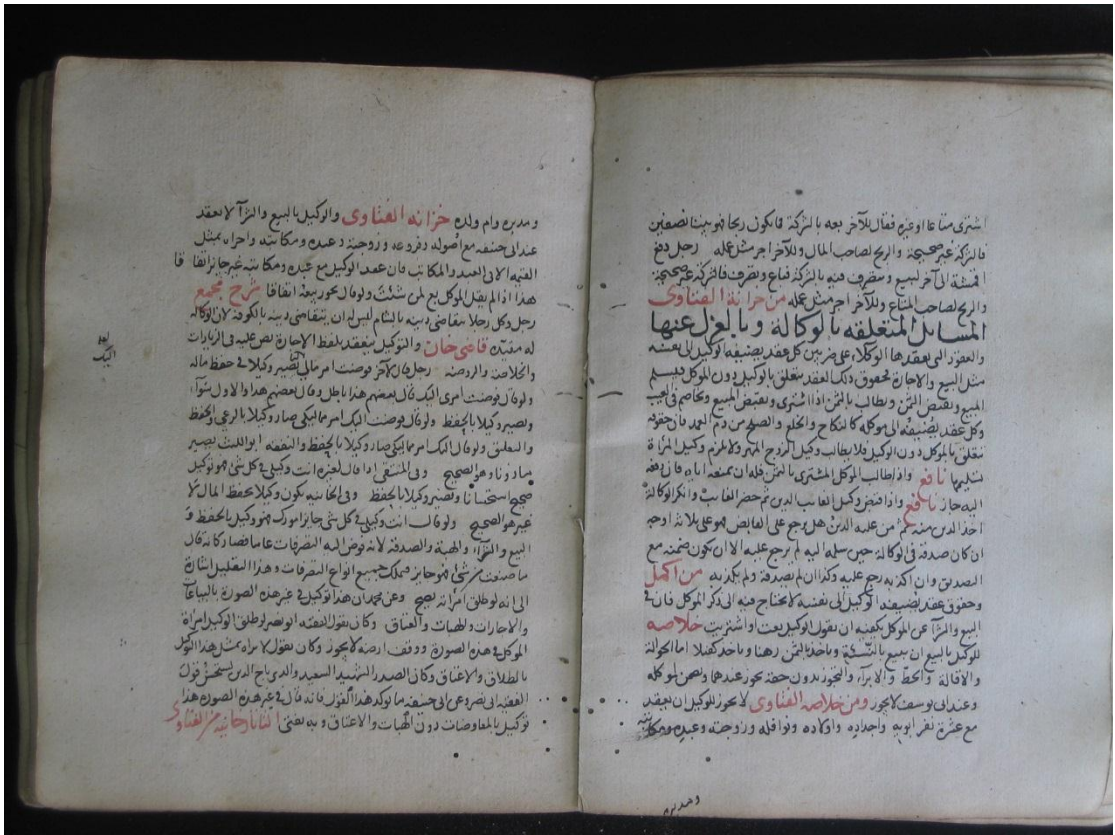 اشترى متاعا او غيره فقال للآخر بعه بالشركة فما يكون ربحا فهو بيننا نصفين
فالشركة غير صحيحة والربح لصاحب المال وللآخر اجر مثل عمله رجل دفع
اقمشة الى آخر ليبيع ويتصرف فيه بالشركة فباع وتصرف فالشركة غير صحيحة
والربح لصاحب المتاع وللآخر اجر مثل عمله من خزانة الفتاوى
المسايل المتعلقة بالوكالة وبالعزل عنها
والعقود التي يعقدها الوكلاء على ضربين كل عقد يضيفه الوكيل الى نفسه
مثل البيع والاجارة فحقوق ذلك العقد يتعلق بالوكيل دون الموكل فيسلم
المبيع ويقبض الثمن ويطالب بالثمن اذا اشترى ويقبض المبيع ويخاصم في العيب
وكل عقد يضيفه الى موكله كالنكاح والخلع والصلح من دم العمد فان حقوقه
تتعلق بالموكل دون الوكيل فلا يطالب وكيل الزوج المهر ولا يلزم وكيل المراة
تسليمها نافع واذا طالب الموكل المشترى بالثمن فله ان يمنعه اياه فان دفعه
اليه جاز نافع واذا قبض وكيل الغائب الدين ثم حضر الغائب وانكر الوكالة
اخذ الدين منه ثم من عليه الدين هل يرجع على القابض فهو على ثلاثة اوجه
ان كان صدقه في الوكالة حين سلمه اليه لم يرجع عليه الا ان يكون ضمنه مع
التصديق وان اكذبه رجع عليه وكذا ان لم يصدقه ولم يكذبه من اكمل
وحقوق عقد يضيفه الوكيل الى نفسه لا يحتاج فيه الى ذكر الموكل فان في
البيع والشرآ عن الموكل يكفيه ان يقول الوكيل بعت او اشتريت خلاصه
للوكيل بالبيع ان يبيع بالنسية وياخذ بالثمن رهنا وياخذ كفيلا اما الحوالة
والاقالة والحط والابراء والتجوز بدون حقه يجوز عندهما ويضمن لموكله
وعند ابى يوسف لا يجوز ومن خلاصة الفتاوى لا يجوز للوكيل ان يعقد
مع عشرة نفر ابويه واجداده واولاده ونوافله وزوجته وعبده ومكاتبه
ومدبره
ومدبره وام ولده خزانه الفتاوى والوكيل بالبيع والشرآ لا يعقد
عند ابى حنيفه مع اصوله وفروعه وزوجته وعبده ومكاتبه واجراه بمثل
القيمه الا فى العبد والمكاتب فان عقد الوكيل مع عبده ومكاتبه غير جايز اتفاقا
هذا اذا لم يقل الموكل بع لمن شئت ولو قال يجوز بيعه اتفاقا شرح مجمع
رجل وكل رجلا بتقاضى دينه بالشام ليس له ان يتقاضى دينه بالكوفة لان الوكالة
له مقيده قاضى خان والتوكيل ينعقد بلفظ الاجازة نص عليه في الزيادات
والخلاصة والروضه رجل قال لآخر فوضت امر مالى يصير وكيلا في حفظ ماله
اليك
ولو قال فوضت امرى اليك قال بعضهم هذا باطل وقال بعضهم هذا والاول سوآء
ويصير وكيلا بالحفظ ولو قال فوضت اليك امر مماليكى صار وكيلا بالرعى والحفظ
والتعليق ولو قال اليك امر مماليكى صار وكيلا بالحفظ والنفقه ابو الليث يصير
ماذونا وهو الصحيح وفى المنتقى اذا قال لغيره انت وكيلى في كل شى فهو توكيل
صحيح استحسانا ويصير وكيلا بالحفظ وفى الخانيه يكون وكيلا بحفظ المال لا
غير هو الصحيح ولو قال انت وكيلى في كل شى جايز امرك فهو وكيل بالحفظ و
البيع والشرآء والهبة والصدقه لانه فوض اليه التصرفات عاما فصار كانه قال
ما صنعت من شئ فهو جايز فيملك جميع انواع التصرفات وهذا التعليل اشارة
الى انه لو طلق امراته يصح وعن محمد ان هذا توكيل في غير هذه الصورة بالبياعات
والاجارات والهبات والعتاق وكان يقول الفقيه ابو نصر لو طلق الوكيل امراة
الموكل في هذه الصورة ووقف ارضه لا يجوز وكان يقول لا يراد بمثل هذا التوكيل
بالطلاق والاعتاق وكان الصدر الشهيد السعيد والدى تاج الدين يستحسن قول
الفقيه ابى نصر وعن ابى حنيفه ما يوكد هذا القول فانه قال في غير هذه الصورة هذا
توكيل بالمفاوضات دون الهبات والاعتاق وبه يفتى التاتارخانيه من الفتاوى